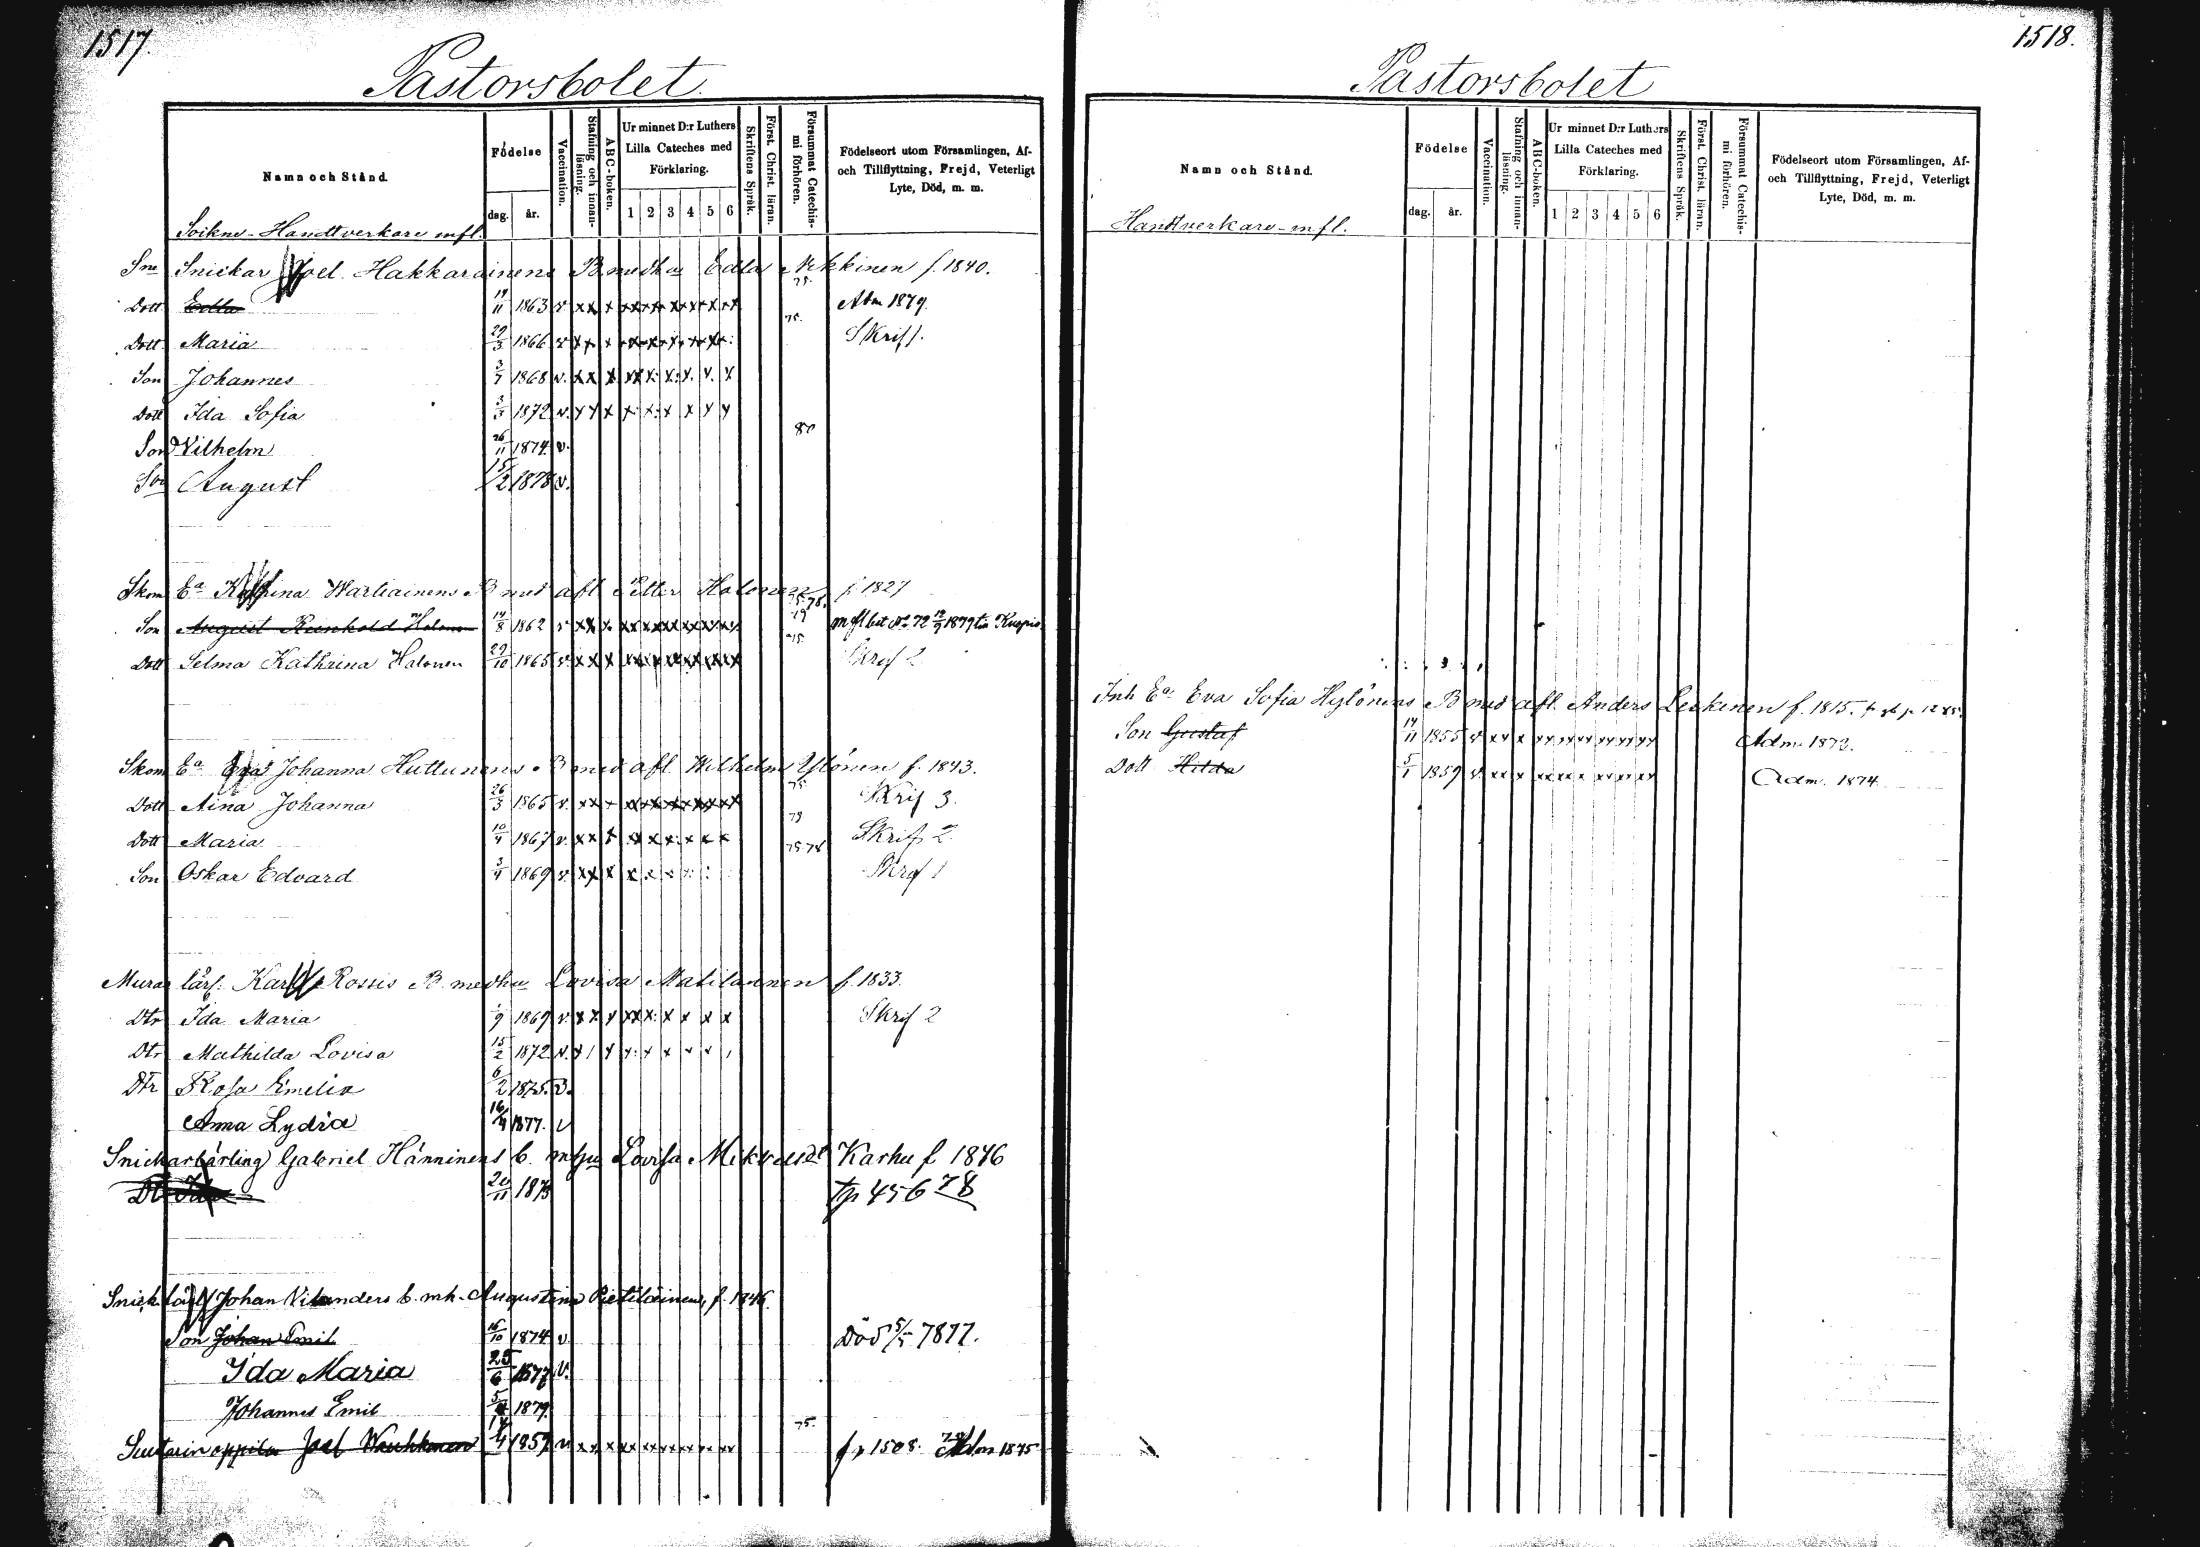 1517.
Pastorsbolet.
Namn och Stånd.
Födelse
dag. år.
Vaccination.
Stafning och innan-läsning.
ABC-boken.
Ur minnet D:r Luthers
Lilla Cateches med
Förklaring.
1 2 3 4 5 6
Skriftens Språk.
Först. Christ. läran.
Försummat Catechis-
mi förhören.
Födelseort utom Församlingen, Af-
och Tillflyttning, Frejd, Veterligt
Lyte, Död, m. m.
Soikne-Handtverkare mfl.
Snickar Joel Hakkarainens B medhu Edla f. 1840.
75.
Dott Edla 11 1863 v xx x Adm 1879.
75.
Dott Maria 29/3 1866 v Skrif 1.
Son Johannes 3/7 1868 v. xx x
Dott Ida Sofia 3/3 1872 v. x
80
Son Vilhelm 26/11 1874 v.
Son August 15/2 1878 v.
Skom Ea Kathrina Wartiainens B med afl Petter Halonen f 1827
75.78.
79
Son August Reinhold Halonen 14/8 1862 v xx x m fl bet No 72 12/9 1879 till Kuopio.
75.
Dott Selma Kathrina Halonen 29/10 1865 v xx x Skrif 2
Skom Ea Eva Johanna Huttunens B med afl Wilhelm Ylönen f. 1843.
75
Dott Aina Johanna 26/3 1865 v. xx x Skrif 3.
79
Dott Maria 10/4 1867 v. xx x Skrif 2
75.78
Son Oskar Edvard 3/4 1869 v. xx x Skrif 1
Murar lärl. Karl Rossis B medhu Lovisa Matilainen f. 1833.
Dtr Ida Maria 9 1869 v xx x Skrif 2
Dtr Mathilda Lovisa 15/2 1872 v.
Dtr Rosa Emelia 6/2 1875. v.
Anna Lydia 16/4 1877. v
Snickarlärling Gabriel Hänninens b. m hu Lovisa Karhu f 1846
Dt Ida 20/11 1873 tp 456 78
Snick. lärl Johan Vilanders b. mh. Augustina Pietiläinen, f. 1846.
Son Johan Emil 15/10 1874 v. Död 5/5 1877.
Ida Maria 25/6 1877 v.
Johannes Emil 1879.
75.
Suutarin oppilas Josef Vauhkonen 14/4 1857 v f p 1508. Adm 1875
1518.
Pastorsbolet
Namn och Stånd.
Födelse
dag. år.
Vaccination.
Stafning och innan-läsning.
ABC-boken.
Ur minnet D:r Luthers
Lilla Cateches med
Förklaring.
1 2 3 4 5 6
Skriftens Språk.
Först. Christ. läran.
Försummat Catechis-
mi förhören.
Födelseort utom Församlingen, Af-
och Tillflyttning, Frejd, Veterligt
Lyte, Död, m. m.
Handtverkare-mfl.
Inh Ea Eva Sofia Hylönens B med afl. Anders Leskinen f. 1815.
Son Gustaf 14/11 1855 v xx x Adm. 1872.
Dott Hilda 5/1 1859 v xx x Adm. 1874.